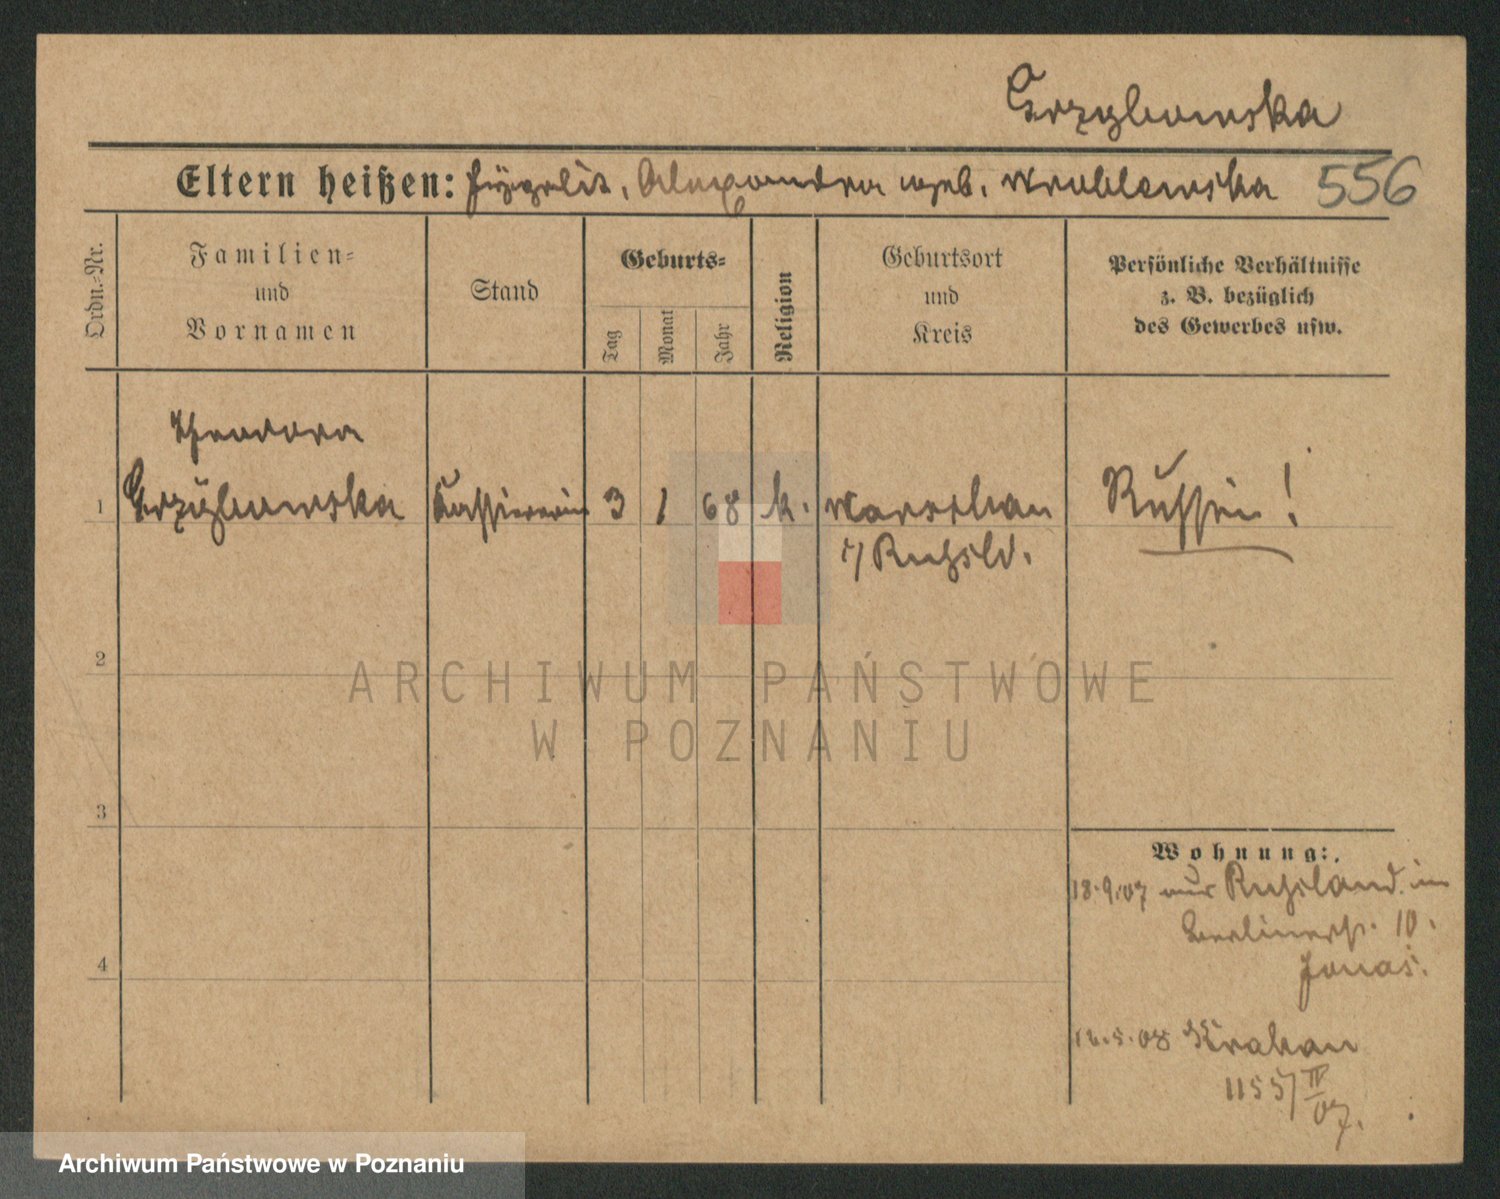 Grzybowska
Eltern heißen: Hypolit, Alexandra geb. Wroblewska 556
Ordn.-Nr.
Familien-
und
Vornamen
Stand
Geburts-
Tag
Monat
Jahr
Religion
Geburtsort
und
Kreis
Persönliche Verhältnisse
z. B. bezüglich
des Gewerbes usw.
Theodora
1 Grzÿbowska Kassiererin 3 1 68 k. Warschau Russin!
i/ Rußld.
2
ARCHIWUM PAŃSTWOWE
W POZNANIU
3
Wohnung:
18.9.07 aus Russland. in
Berlinerstr. 10.
Jonas.
4
5.08 Krakau
1155/IV
07.
Archiwum Państwowe w Poznaniu